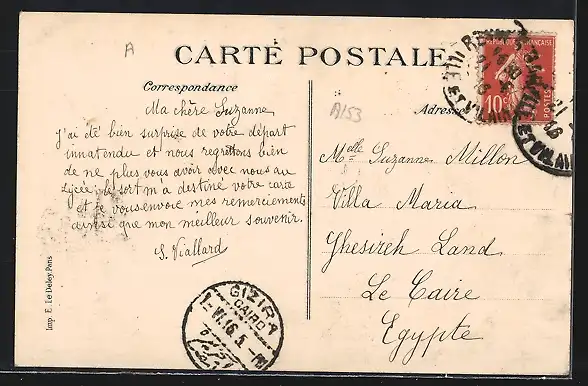 A
CARTE POSTALE
Correspondance
A153
Adresse
REPUBLIQUE FRANÇAISE
10
POSTES
ILLE ET VILAINE
Ma chère Suzanne
j'ai été bien surprise de votre départ
innatendu et nous regrettons bien
de ne plus vous avoir avec nous au
lycée; le sort m'a destiné votre cara
et je vous envoie mes remerciements
ainsi que mon meilleur souvenir.
S. Viallard
Melle Suzanne Millon
Villa Maria
Ghesireh Land
Le Caire
Egypte
GIZIRA
CAIRO
Imp. E. Le Deley, Paris